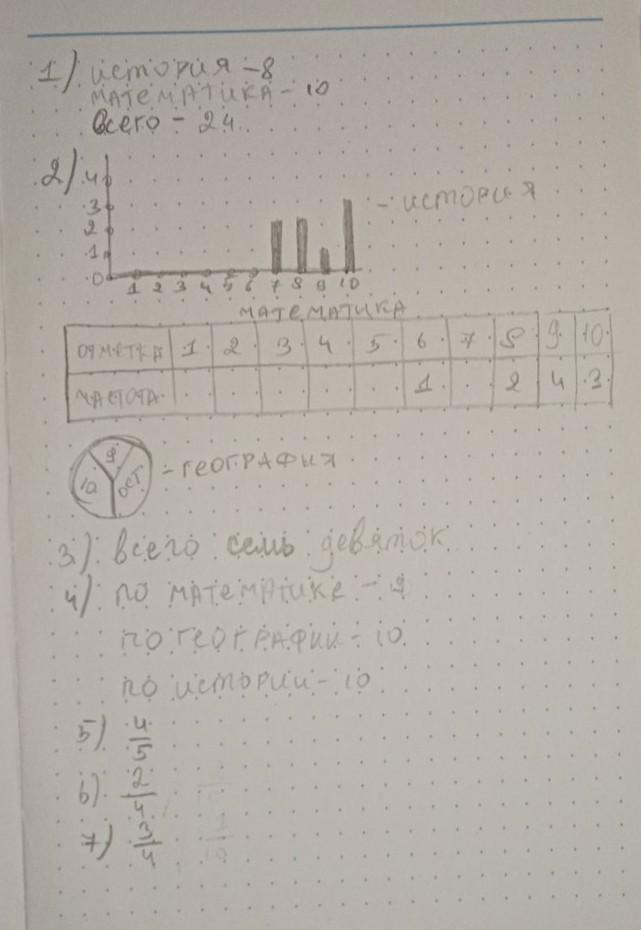 1) история - 8
математика - 10
всего - 24
2)
4
3
2
1
0
1 2 3 4 5 6 7 8 9 10
- история
математика
отметка 1 2 3 4 5 6 7 8 9 10
частота 1 2 4 3
9
10 ост
- география
3) всего семь девяток
4) по математике - 9
по географии - 10
по истории - 10
5) 4/5
6) 2/4
7) 3/4